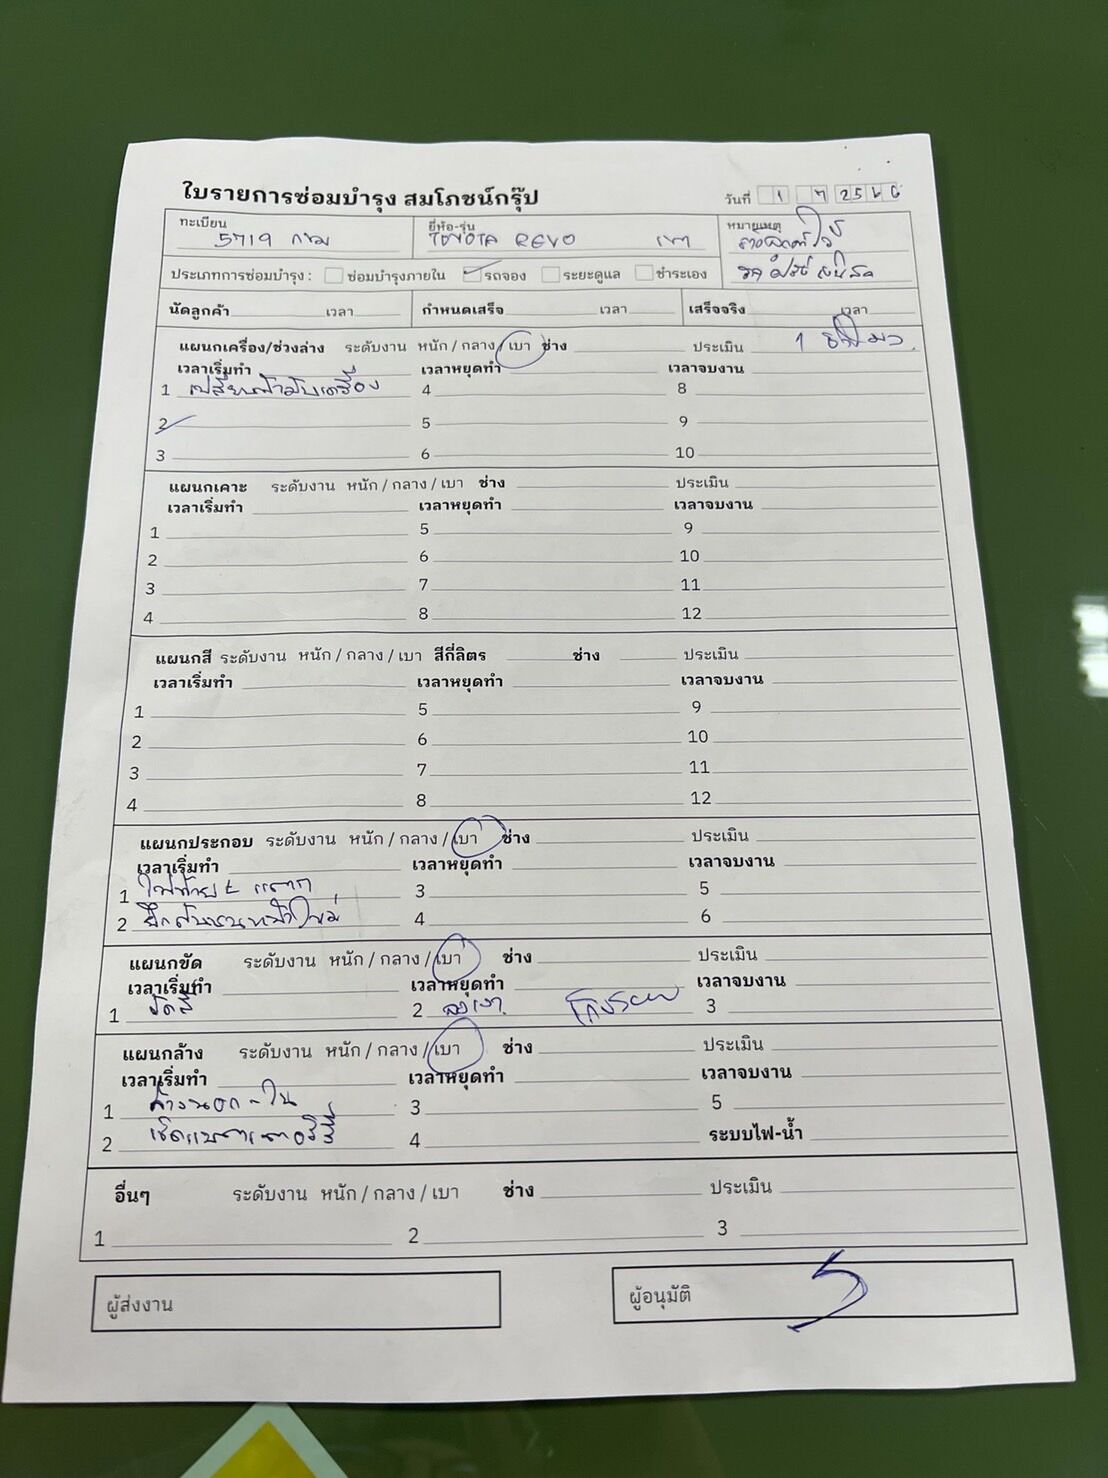 ใบรายการซ่อมบำรุง สมโภชน์กรุ๊ป
วันที่ 1 7 2566
ทะเบียน 5719 ยี่ห้อ-รุ่น TOYOTA REVO เทา หมายเหตุ
ประเภทการซ่อมบำรุง : ซ่อมบำรุงภายใน รถจอง ระยะดูแล ชำระเอง
นัดลูกค้า เวลา กำหนดเสร็จ เวลา เสร็จจริง เวลา
แผนกเครื่อง/ช่วงล่าง ระดับงาน หนัก / กลาง / เบา ช่าง ประเมิน 1
เวลาเริ่มทำ เวลาหยุดทำ เวลาจบงาน
1 เปลี่ยนน้ำมันเครื่อง 4 8
2 5 9
3 6 10
แผนกเคาะ ระดับงาน หนัก / กลาง / เบา ช่าง ประเมิน
เวลาเริ่มทำ เวลาหยุดทำ เวลาจบงาน
1 5 9
2 6 10
3 7 11
4 8 12
แผนกสี ระดับงาน หนัก / กลาง / เบา สีกี่ลิตร ช่าง ประเมิน
เวลาเริ่มทำ เวลาหยุดทำ เวลาจบงาน
1 5 9
2 6 10
3 7 11
4 8 12
แผนกประกอบ ระดับงาน หนัก / กลาง / เบา ช่าง ประเมิน
เวลาเริ่มทำ เวลาหยุดทำ เวลาจบงาน
1 ไฟท้าย L แตก 3 5
2 ยึดกันชนหน้าใหม่ 4 6
แผนกขัด ระดับงาน หนัก / กลาง / เบา ช่าง ประเมิน
เวลาเริ่มทำ เวลาหยุดทำ เวลาจบงาน
1 ขัดสี 2 ลงเงา 3
แผนกล้าง ระดับงาน หนัก / กลาง / เบา ช่าง ประเมิน
เวลาเริ่มทำ เวลาหยุดทำ เวลาจบงาน
1 ล้างนอก-ใน 3 5
2 เช็คแบตเตอรี่ 4 ระบบไฟ-น้ำ
อื่นๆ ระดับงาน หนัก / กลาง / เบา ช่าง ประเมิน
1 2 3
ผู้ส่งงาน ผู้อนุมัติ